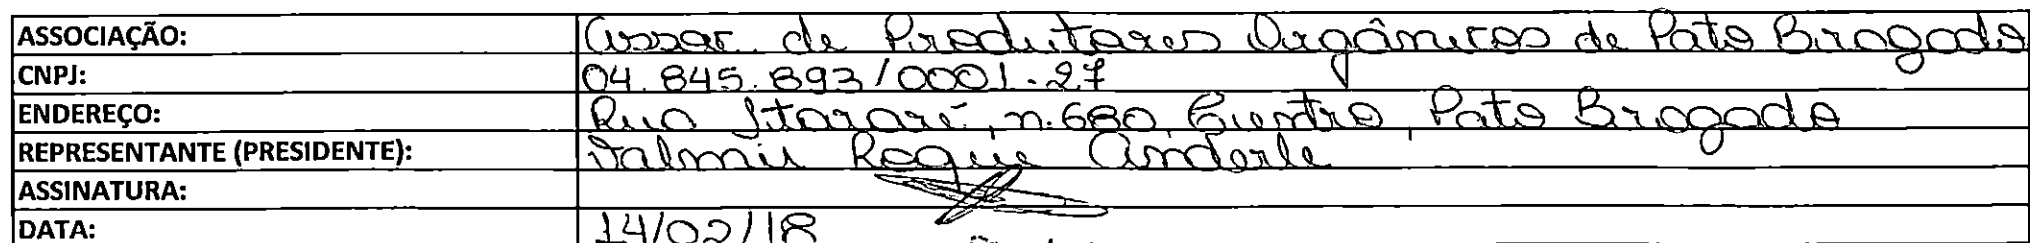 ASSOCIAÇÃO: Assoc. de Produtores Orgânicos de Pato Bragado
CNPJ: 04.845.893/0001-27
ENDEREÇO: Rua Itararé, n:680, Centro, Pato Bragado
REPRESENTANTE (PRESIDENTE): Valmir Roque Anderle
ASSINATURA:
DATA: 14/02/18